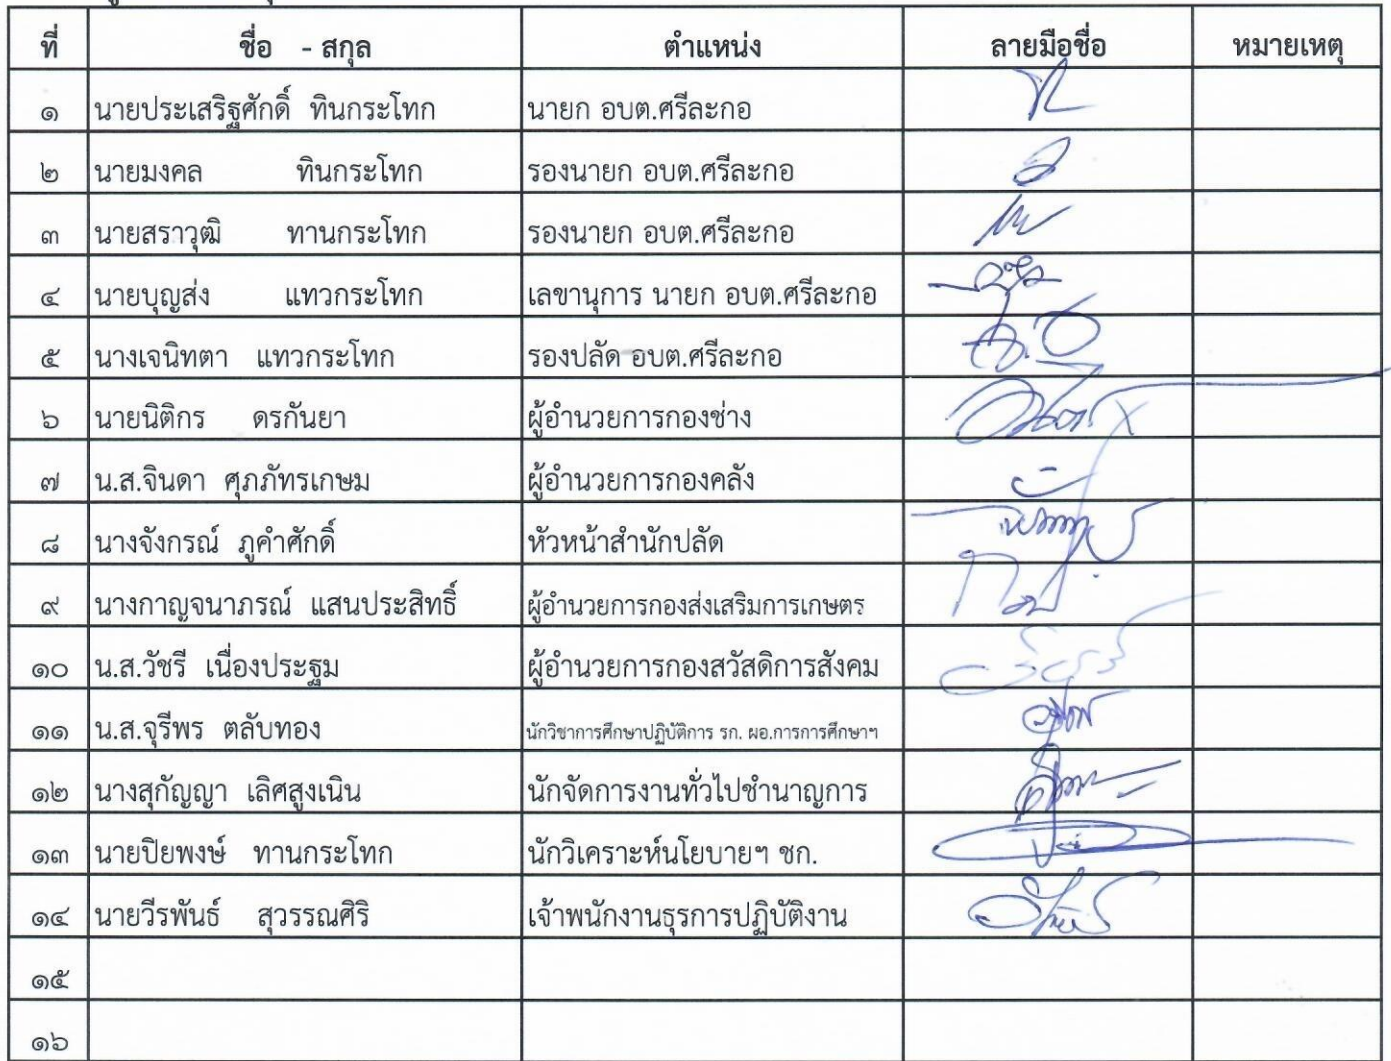 ที่ ชื่อ - สกุล ตำแหน่ง ลายมือชื่อ หมายเหตุ
๑ นายประเสริฐศักดิ์ ทินกระโทก นายก อบต.ศรีละกอ
๒ นายมงคล ทินกระโทก รองนายก อบต.ศรีละกอ
๓ นายสราวุฒิ ทานกระโทก รองนายก อบต.ศรีละกอ
๔ นายบุญส่ง แทวกระโทก เลขานุการ นายก อบต.ศรีละกอ
๕ นางเจนิทตา แทวกระโทก รองปลัด อบต.ศรีละกอ
๖ นายนิติกร ดรกันยา ผู้อำนวยการกองช่าง
๗ น.ส.จินดา ศุภภัทรเกษม ผู้อำนวยการกองคลัง
๘ นางจังกรณ์ ภูคำศักดิ์ หัวหน้าสำนักปลัด
๙ นางกาญจนาภรณ์ แสนประสิทธิ์ ผู้อำนวยการกองส่งเสริมการเกษตร
๑๐ น.ส.วัชรี เนื่องประฐม ผู้อำนวยการกองสวัสดิการสังคม
๑๑ น.ส.จุรีพร ตลับทอง นักวิชาการศึกษาปฏิบัติการ รก. ผอ.การการศึกษาฯ
๑๒ นางสุกัญญา เลิศสูงเนิน นักจัดการงานทั่วไปชำนาญการ
๑๓ นายปิยพงษ์ ทานกระโทก นักวิเคราะห์นโยบายฯ ชก.
๑๔ นายวีรพันธ์ สุวรรณศิริ เจ้าพนักงานธุรการปฏิบัติงาน
๑๕
๑๖